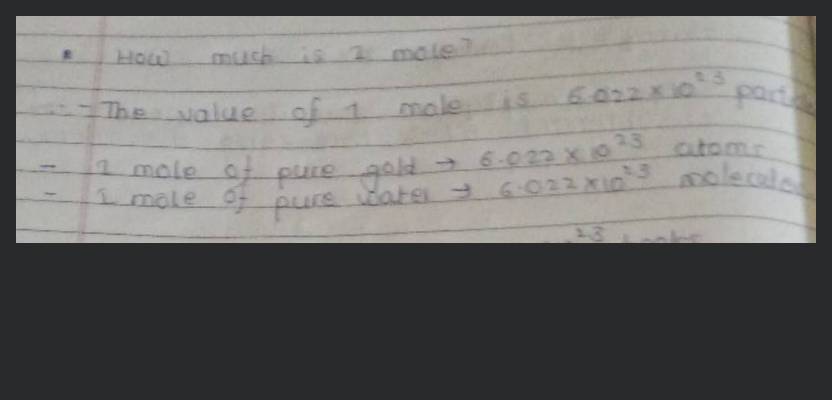 • How much is 1 mole?
- The value of 1 mole is 6.022 × 10²³
- 1 mole of pure gold → 6.022 × 10²³ atoms
- 1 mole of pure water → 6.022 × 10²³ molecules
23